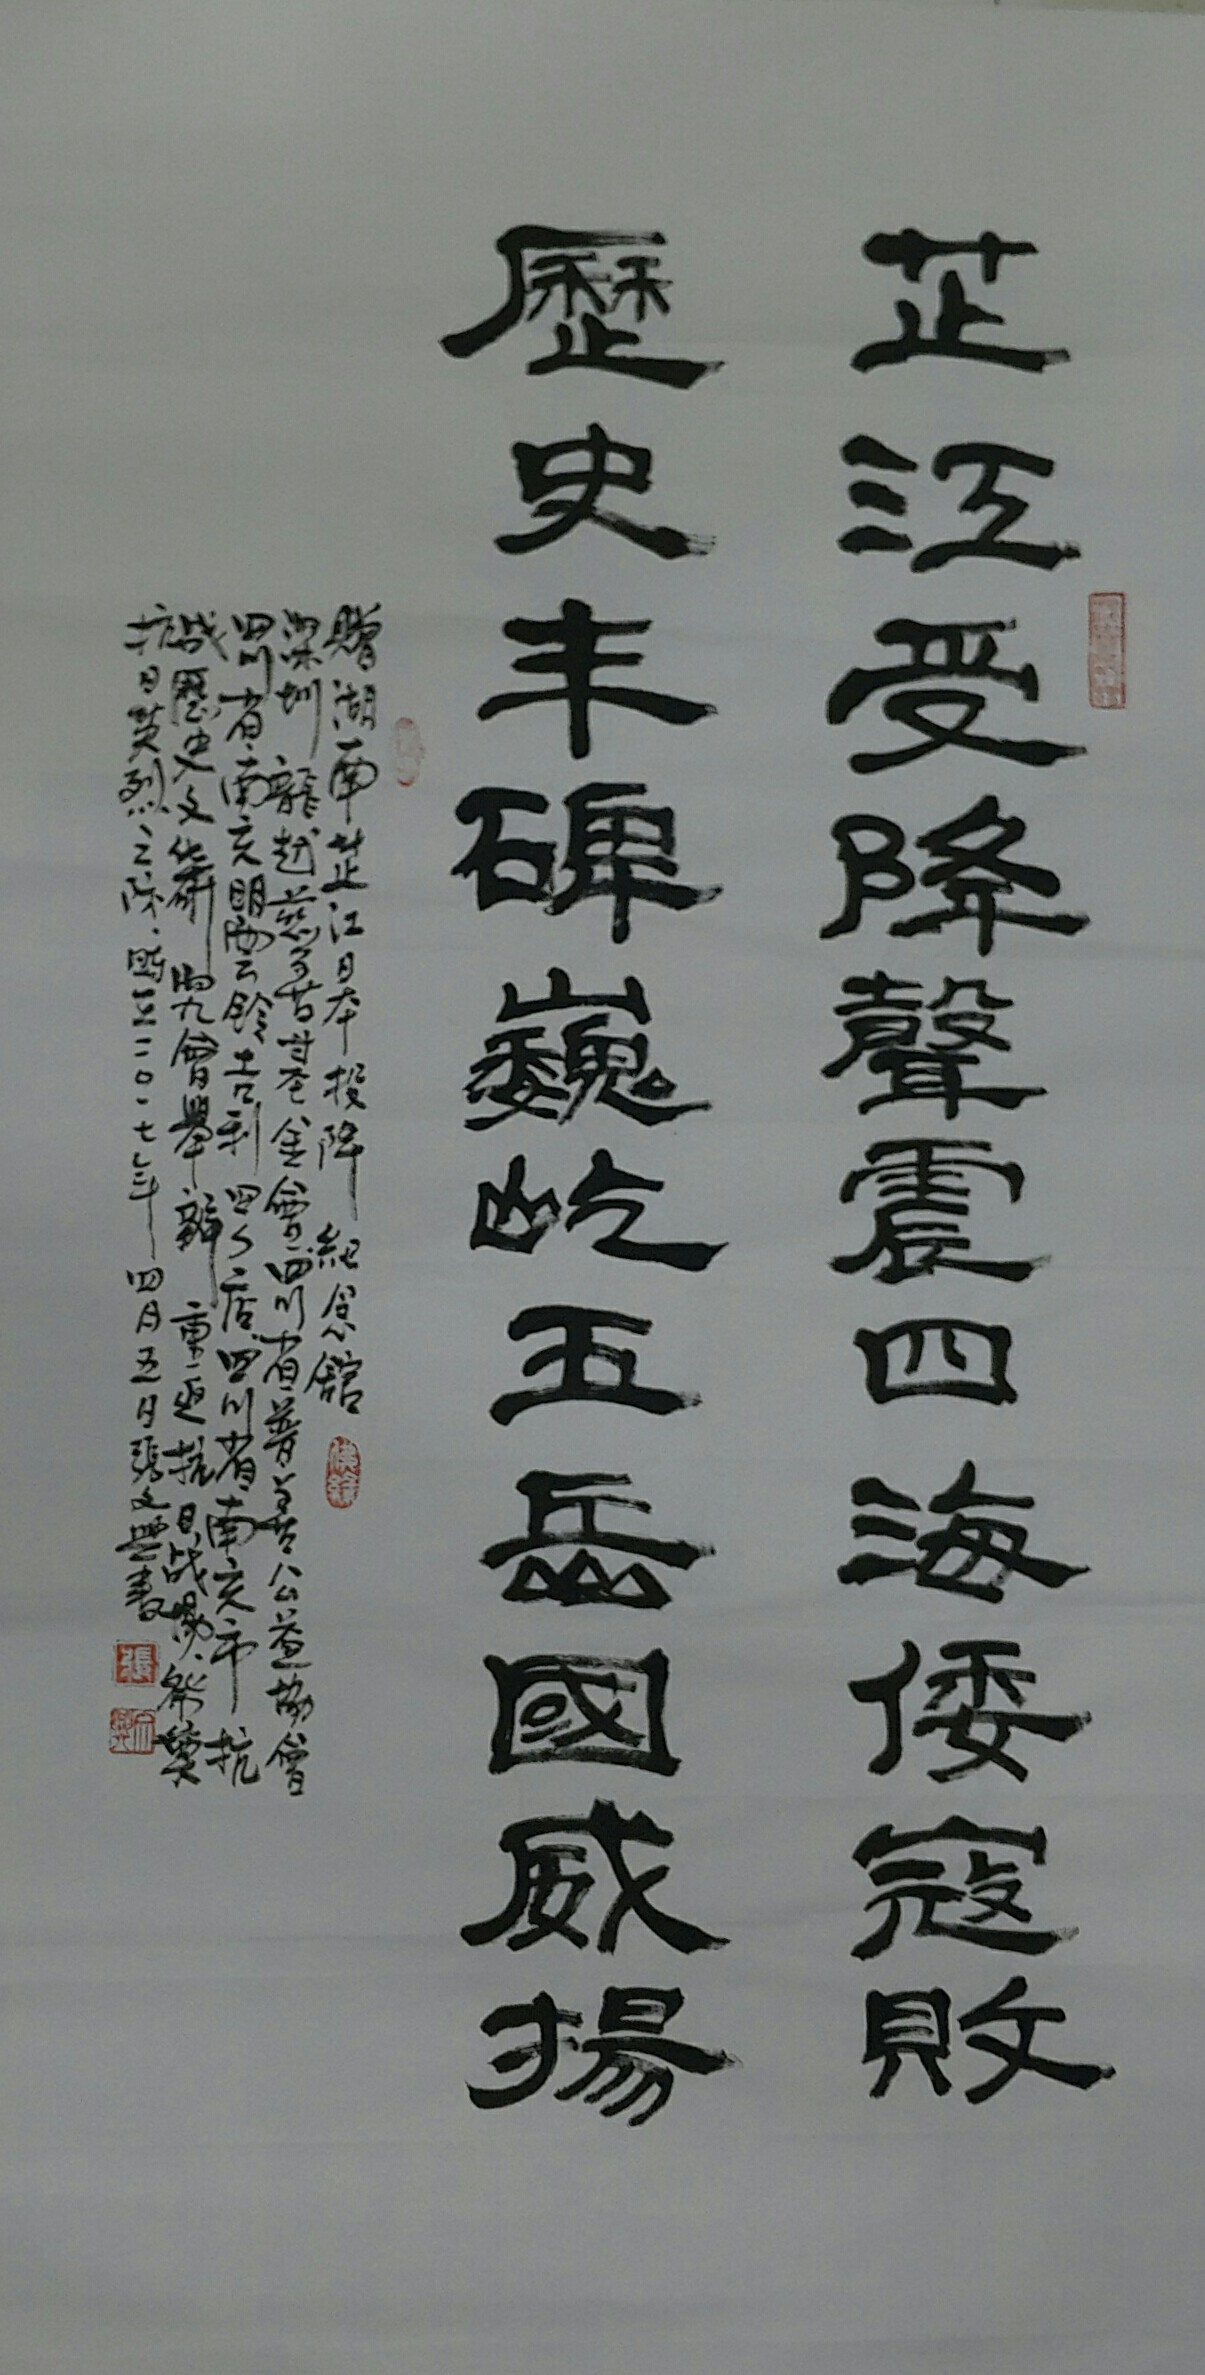 芷江受降聲震四海倭寇敗
歷史丰碑巍屹五岳國威揚
贈湖南芷江日本投降紀念館
深圳龍越慈善基金會四川省普善公益協會
四川省南充明陽云鈴吉利四S店四川省南充市抗
战歷史文化研究會舉辦重返抗日战場祭奠
抗日英烈之際時在二〇一七年四月五日張文興書
張